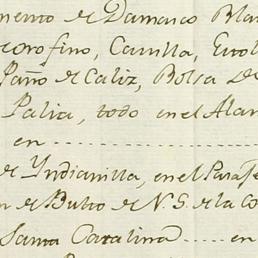 mento de Damasco Blan
de oro fino, Casulla, Estol
Paño de Caliz, Bolsa de
Palia, todo en el Alan
en
de Yndianilla, en el Paraje
n de Bulto de N. S. de la Co
Santa Catalina ..... en